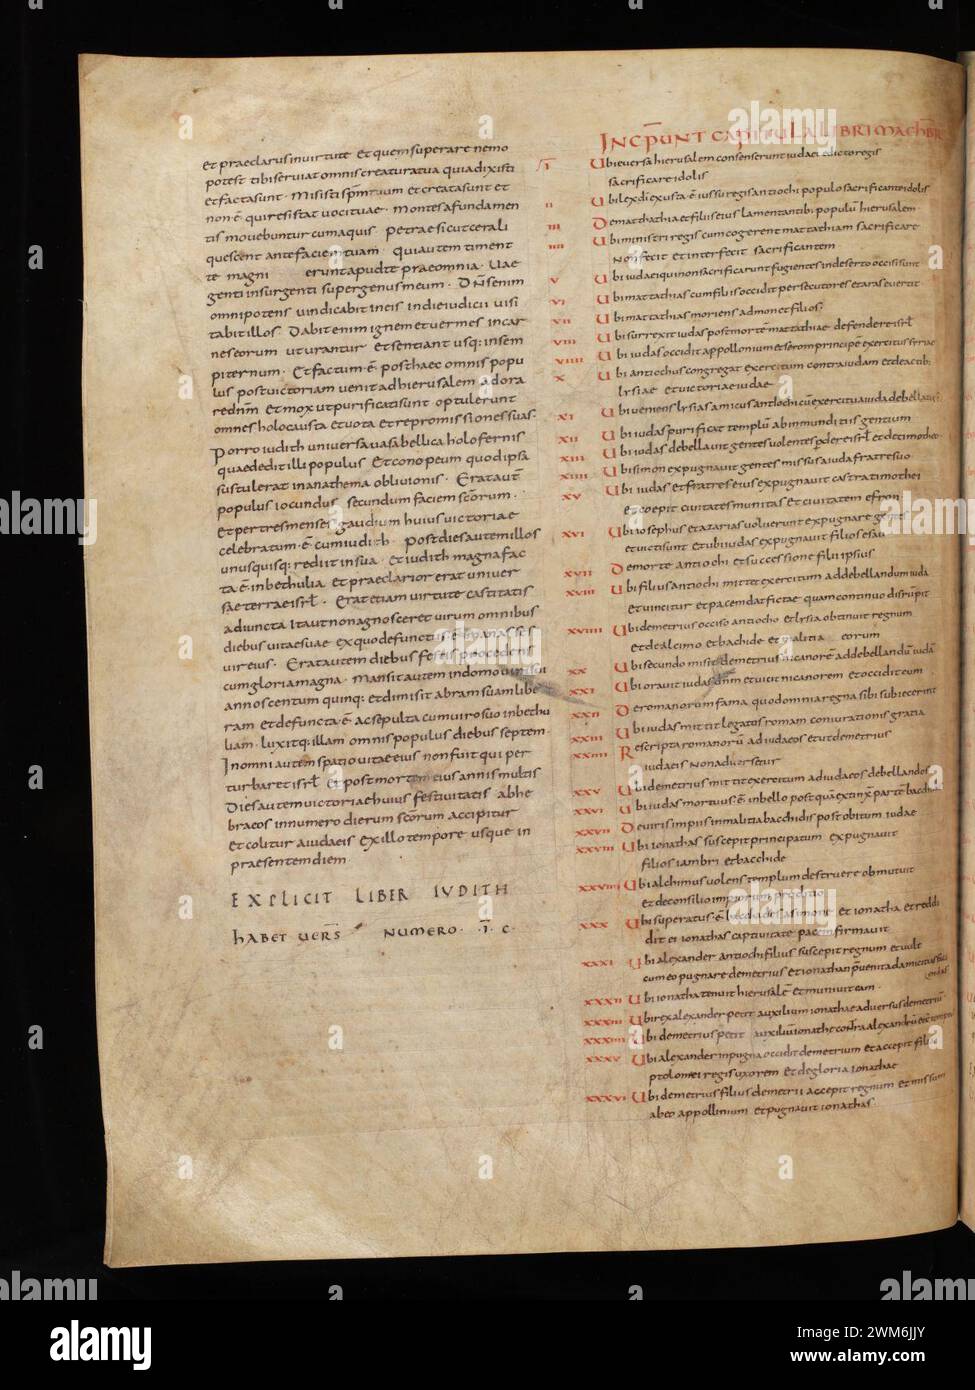 et praeclarus in uirtute et quem superare nemo
potest tibi seruiat omnis creatura tua quia dixisti
et facta sunt · misisti sp̄m tuum et creata sunt et
non ē · qui resistat uoci tuae · montes a fundamen
tis mouebuntur cum aquis petrae sicut cera li
quescent ante faciem tuam · Qui autem timent
te magni erunt apud te prae omnia · Uae
genti insurgenti super genus meum · Dn̄s enim
omnipotens uindicabit in eis in die iudicii uisi
tabit illos Dabit enim ignem et uermes in car
nes eorum ut urantur et sentiant usq; in sem
piternum · Et factum ē · post haec omnis popu
lus post uictoriam uenit ad hierusalem adora
re dn̄m et mox ut purificati sunt optulerunt
omnes holocausta et uota et repromissiones suas ·
Porro iudith uniuersa uasa bellica holofernis
quae dedit illi populus Et conopeum quod ipsa
sustulerat in anathema obliuionis · Erat aut̄
populus iocundus secundum faciem sc̄orum ·
et per tres menses gaudium huius uictoriae
celebratum · ē cum iudith · Post dies autem illos
unusquisq; rediit in sua · et iudith magna fac
ta ē · in bethulia et praeclarior erat uniuer
sae terrae isrl̄ · Erat etiam uirtute castitatis
adiuncta Ita ut non agnosceret uirum omnibus
diebus uitae suae ex quo defunctus ē · manasses
uir eius · Erat autem diebus festis procedens
cum gloria magna · Mansit autem in domo uiri sui
annos centum quinq; et dimisit abram suam libe
ram et defuncta · ē · ac sepulta cum uiro suo in bethu
liam · luxitq; illam omnis populus diebus septem ·
In omni autem spatio uitae eius non fuit qui per
turbaret isrl̄ et post mortem eius annis multis
Dies autem uictoriae huius festiuitatis ab he
braeos in numero dierum sc̄orum accipitur
et colitur a iudaeis ex illo tempore usque in
praesentem diem ·
EXPLICIT LIBER IUDITH
habet uers̄ numero · ī · c ·
INCIPUNT CAPITULA LIBRI MACHBR
ī Ubi euersa hierusalem consenserunt iudaei edicto regis
sacrificare idolis
ii Ubi lex di exusta · ē iussu regis antiochi populo sacrificante idolis
iii De mathathia et filiis eius lamentantibus populū hierusalem
iiii Ubi ministri regis cum cogerent mattathiam sacrificare
non fecit et interfecit sacrificantem
v Ubi iudaei qui non sacrificarunt fugientes in deserto occisi sunt
vi Ubi mattathias cum filiis occidit persecutores et aras euertit
vii Ubi mattathias moriens admonet filios ·
viii Ubi surrexit iudas post mortē mattathiae defendere isrl̄
viiii Ubi iudas occidit appollonium et seron principē exercitus syriae
x Ubi antiochus congregat exercitum contra iudam
lysiae et uictoria iudae
xi Ubi ueniens lysias amicus antiochi cū exercitu a iuda debellatus
xii Ubi iudas purificat templū ab inmunditiis gentium
xiii Ubi iudas debellauit gentes uolentes pdere isrl̄ et de timotheo
xiiii Ubi simon expugnauit gentes missus a iuda fratre suo
xv Ubi iudas et fratres eius expugnauit castra timothei
et coepit ciuitates munitas et ciuitatem efron
xvi Ubi iosephus et azarias uoluerunt expugnare gentes
et uicti sunt et ubi iudas expugnauit filios esau
xvii De morte antiochi et successione filii ipsius
xviii Ubi filius antiochi mittet exercitum ad debellandum iuda
et uincitur et pacem dat ficte quam continuo disrupit
xviiii Ubi demetrius occiso antiocho et lysia obtinuit regnum
et de alcimo et bachide et malitia eorum
xx Ubi secundo misit demetrius nicanorē ad debellandū iudā
xxi Ubi orauit iudas dn̄m et uicit nicanorem et occidit eum
xxii De romanorum fama quod omnia regna sibi subiecerint
xxiii Ubi iudas mittit legatos romam coniurationis gratia
xxiiii Rescripta romanorū ad iudaeos et ut demetrius
iudaeis non aduersetur
xxv Ubi demetrius mittit exercitum ad iudaeos debellandos
xxvi Ubi iudas mortuus · ē in bello postquā extinx̄ partē bacchidis
xxvii De uiris impiis in malitia bacchidis post obitum iudae
xxviii Ubi ionathas suscepit principatum expugnauit
filios iambri et bacchide
xxviiii Ubi alchimus uolens templum destruere obmutuit
et de consilio impiorum proditio
xxx Ubi superatus · ē bacchides a simone et ionatha et reddi
dit ei ionathas captiuitate pacem firmauit
xxxi Ubi alexander antiochi filius suscepit regnum et uult
cum eo pugnare demetrius et ionathan
xxxii Ubi ionatha tenuit hierusalē et muniuit eam ·
xxxiii Ubi rex alexander petit auxilium ionathae aduersus demetriū
xxxiiii Ubi demetrius petit auxiliū ionathe contra alexandrū
xxxv Ubi alexander inpugna occidit demetrium et accepit filiā
ptolomei regis uxorem et de gloria ionathae
xxxvi Ubi demetrius filius demetrii accepit regnum et missum
ab eo appollinium et pugnauit ionathas ·
alamy
Image ID: 2WM6JJY
www.alamy.com